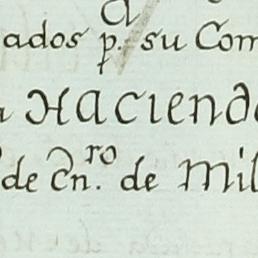 a
ados p.r su Com
a Hacienda
de en.ro de mil